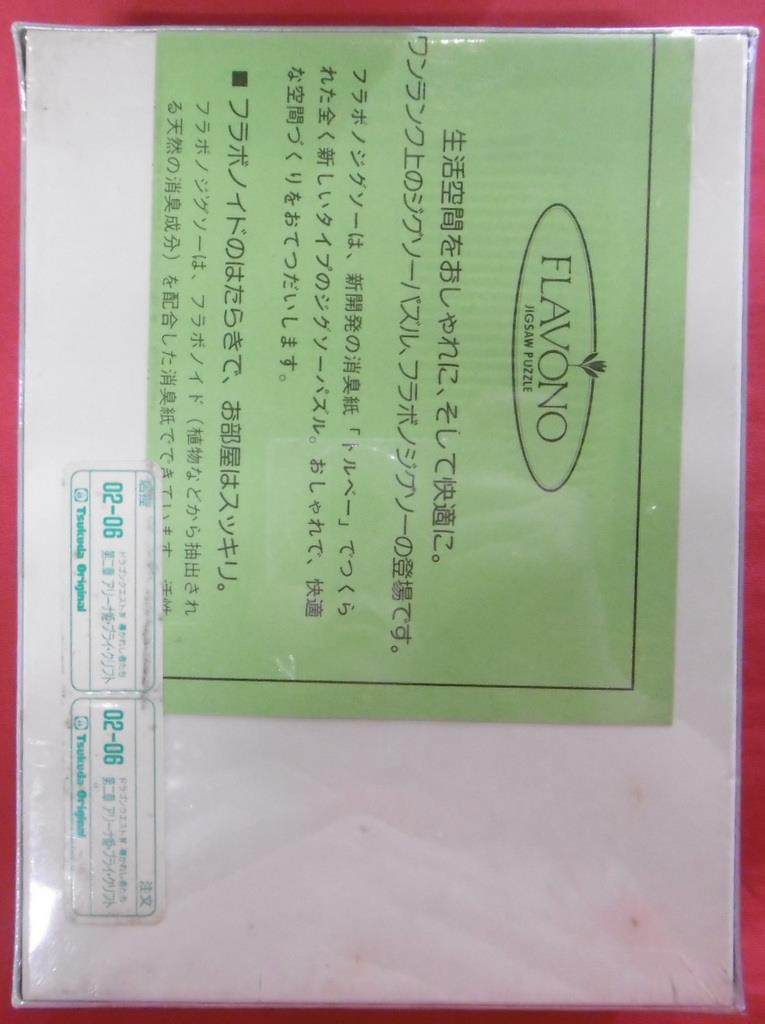 FLAVONO
JIGSAW PUZZLE
生活空間をおしゃれに、そして快適に。
ワンランク上のジグソーパズル、フラボノジグソーの登場です。
フラボノジグソーは、新開発の消臭紙「トルベー」でつくら
れた全く新しいタイプのジグソーパズル。おしゃれで、快適
な空間づくりをおてつだいします。
■ フラボノイドのはたらきで、お部屋はスッキリ。
フラボノジグソーは、フラボノイド（植物などから抽出され
る天然の消臭成分）を配合した消臭紙でできています
02-06
ドラゴンクエストⅣ 導かれし者たち
第二章 アリーナ姫・ブライ・クリフト
Tsukuda Original
注文
02-06
ドラゴンクエストⅣ 導かれし者たち
第二章 アリーナ姫・ブライ・クリフト
Tsukuda Original